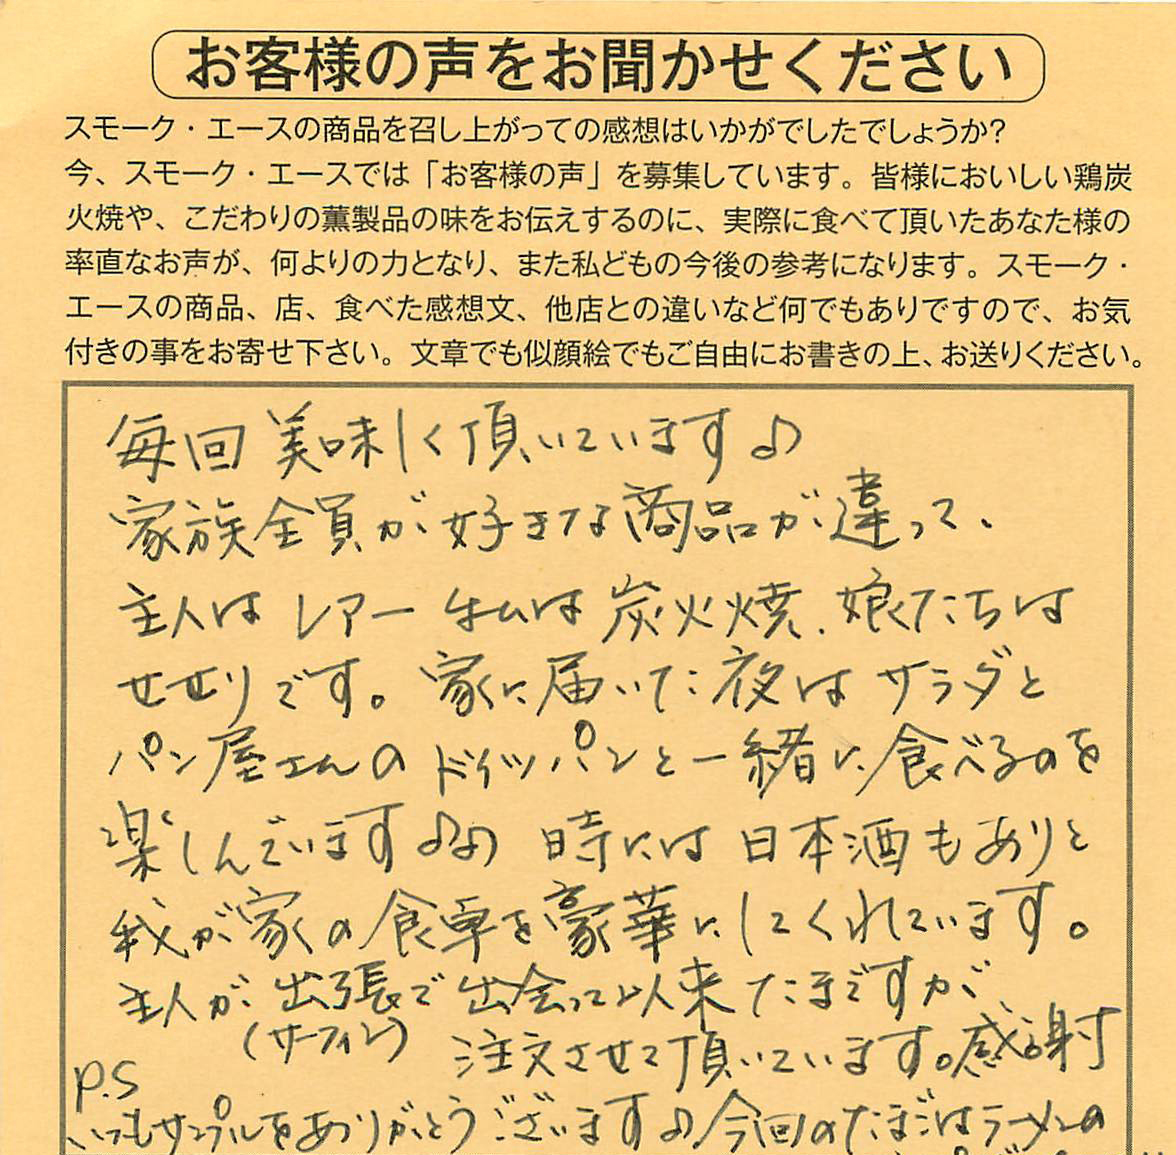 お客様の声をお聞かせください
スモーク・エースの商品を召し上がっての感想はいかがでしたでしょうか?
今、スモーク・エースでは「お客様の声」を募集しています。皆様においしい鶏炭
火焼や、こだわりの薫製品の味をお伝えするのに、実際に食べて頂いたあなた様の
率直なお声が、何よりの力となり、また私どもの今後の参考になります。スモーク・
エースの商品、店、食べた感想文、他店との違いなど何でもありですので、お気
付きの事をお寄せ下さい。文章でも似顔絵でもご自由にお書きの上、お送りください。
毎回美味しく頂いています♪
家族全員が好きな商品が違って、
主人はレアー 私は炭火焼、娘たちは
せせりです。家に届いた夜はサラダと
パン屋さんのドイツパンと一緒に食べるのを
楽しんでいます♪♪ 時には日本酒もありと
我が家の食卓を豪華にしてくれています。
主人が出張で出会って以来たまですが
(サーフィン) 注文させて頂いています。感謝
P.S
いつもサンプルをありがとうございます♪今回のたまごはラーメンの